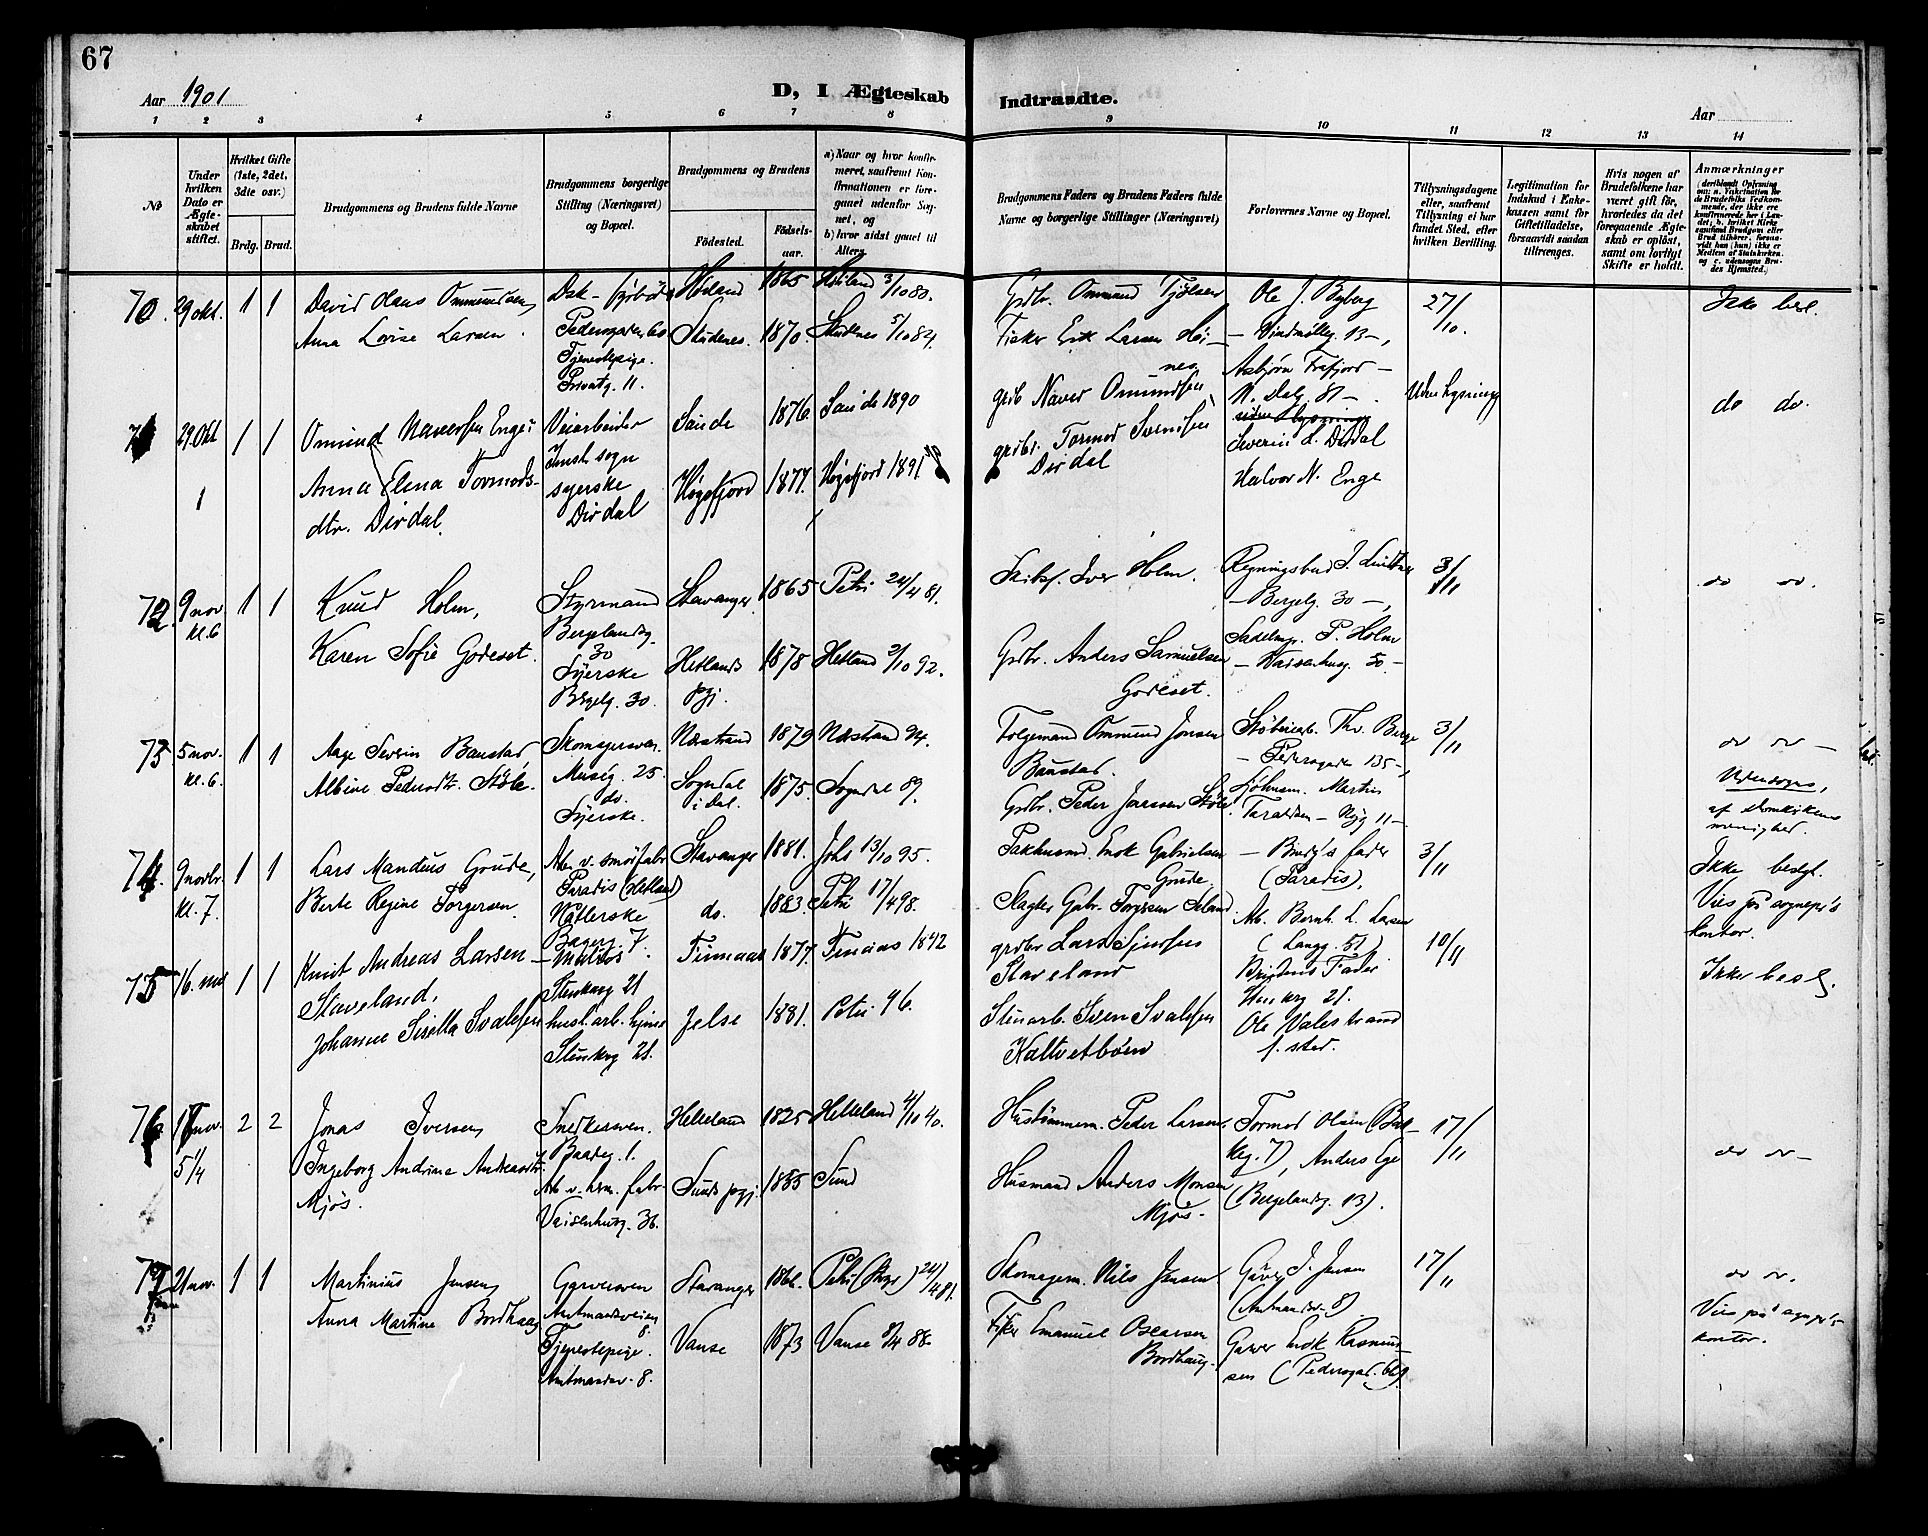 67
Aar 1901
D, I Ægteskab Indtraadte.
Aar
1 2 3 4 5 6 7 8 9 10 11 12 13 14
No
Under hvilken Dato er Ægteskabet stiftet.
Hvilket Gifte (1ste, 2det, 3die osv.)
Brdg. Brud.
Brudgommens og Brudens fulde Navne
Brudgommens borgerlige Stilling (Næringsvei) og Bopæl.
Brudgommens og Brudens
Födested.
Födsels-aar.
a) Naar og hvor konfirmeret, saafremt Konfirmationen er foregaaet udenfor Sognet, og
b) hvor sidst gaaet til Alters.
Brudgommens Faders og Brudens Faders fulde Navne og borgerlige Stillinger (Næringsvei)
Forlovernes Navne og Bopæl.
Tillysningsdagene eller, saafremt Tillysning ei har fundet Sted, efter hvilken Bevilling.
Legitimation for Indskud i Enkekassen samt for Giftetilladelse, forsaavidt saadan tiltrænges.
Hvis nogen af Brudefolkene har været gift før, hvorledes da det foregaaende Ægteskab er opløst, samt om lovligt Skifte er holdt.
Anmærkninger
70. 29 okt. 1 1
David Hans Ommundsen,
Anna Lovise Larsen.
Pedersgaden 60
Tjenestepige.
Privatg. 11.
Høiland 1865 Høiland 3/10 80.
Skudenes. 1870. Skudenes 5/10 84.
Grdbr. Ommund Tjølsen
Fisker Erik Larsen Høi-
nes
Ole J. Byberg
- Vindmølleg. 13 -,
Asbjørn Frafjord -
N. Dalg. 81 -.
27/10.
Ikke besl.
71 29. Okt 1 1
1
Ommund Naversen Enge
Anna Elena Tormods-
dtr. Dirdal.
Veiarbeider
sogn
syerske
Dirdal
Sande 1876 Sande 1890
Høgsfjord 1877. Høgsfjord 1891
grdb Naver Omundsen
grdbr. Tormod Svensen
Dirdal
Severin L. Dirdal
Halvor N. Enge
Uden lysning
do do.
72. 9 nov. kl. 6 1 1
Knud Holm,
Karen Sofie Godeset.
Styrmand
Bergelandsg.
30
Syerske
Bergelg. 30.
Stavanger 1865 Petri 24/4 81.
Hetlands pgj. 1878 Hetland 2/10 92.
Skibsf. Iver Holm.
Grdbr. Anders Samuelsen
Godeset.
Regningsbud J.
- Bergelg. 30 -,
Sadelmg. P. Holm
- Vaisenhusg. 50 -
3/11
do do.
73 5 nov. kl. 6. 1 1
Aage Severin Baustad,
Albine Pedersdtr. Støle.
Skomagersven.
Muség. 25.
do.
Syerske.
Nærstrand 1879 Nærstrand 94.
Sogndal i Dal. 1875. Sogndal 89.
Ommund Jonsen
Baustad.
Grdbr. Peder Janssen Støle.
Støberiarb. Thv. Berge
- Pedersgaden 135 -,
Sjøhusm. Martin
Taraldsen - Nyg 11 -
3/11
do do -
Udensogns,
af domkirkens
menighed.
74. 9 novbr. Kl. 7. 1 1
Lars Mandius Grude,
Berte Regine Torgersen.
Arb. v. smørfabr
Paradis (Hetland)
Væverske
Bagerg. 7.
Stavanger 1881. Johs 13/10 95.
do. 1883. Petri 17/4 98.
Pakhusmd. Enok Gabrielsen
Grude.
Slagter Gabr. Torgersen
- Brudg's fader
(Paradis),
Arb. Bernh. L. Larsen
(Langg. 51)
3/11
Ikke beslgt.
Vies på sognepr's
kontor.
75 16. nov 1 1
Knut Andreas Larsen
Staveland,
Johanne Sisilla Svalesen
- Matros
Stenkarg 21
husl. arb. hjme
Stenkarg 21.
Finnaas 1877. Finnaas 1892
Jelse 1881. Petri 96.
grdbr Lars Sjursen
Staveland
Stenarb. Sven Svalesen
Kaltvetbøen
Brudens Fader
Stenkarg 21.
Ole Valestrand
s. sted.
10/11
Ikke besl.
76. 17 nov. 5 1/4 2 2
Jonas Iversen,
Ingeborg Andrine Andreasdtr.
Mjøs.
Snedkersven.
Baadeg. 1.
Arb v. hrm. fabr-
Vaisenhusg. 36.
Helleland 1825 Helleland 4/10 40.
Sunds pgj. 1855 Sund
Hustømmerm. Peder Larsen.
Husmand Anders Monsen
Mjøs.
Tormod Olsen (Bak-
keg. 7), Anders Ege
(Bergelandsg. 13).
17/11
do do -
77. 21 nov. 1 1
Martinius Jensen,
Anna Martine Bordhaug
Garversven
Amtmandsveien
8.
Tjenestepige.
Amtmandsv. 8.
Stavanger 1866. Petri 24/4 81.
Vanse 1873 Vanse 8/4 88.
Skomagerm. Nils Jensen
Fisker Emanuel Oscarsen
Bordhaug.
Garver J. Jensen
(Amtmandsv. 8).
Garver Enok Rasmus-
sen (Pedersgad.
17/11
do do.
Vies på sognepr's
kontor.